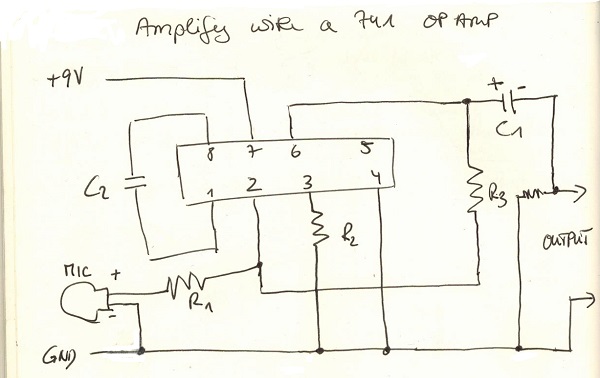 Amplify with a 741 OP AMP
+9V
+ -
C1
8 7 6 5
C2
1 2 3 4
R3
R2
OUTPUT
MIC +
R1
-
GND